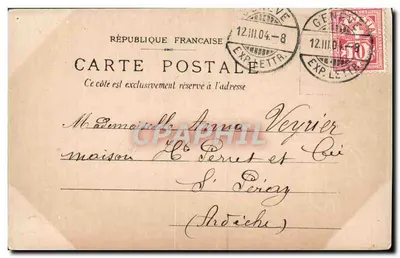 GENÈVE
12.III.04.-8
EXP. LETTR.
GENÈVE
12.III.04.-8
EXP. LETTR.
RÉPUBLIQUE FRANÇAISE
CARTE POSTALE
Ce côté est exclusivement réservé à l'adresse
Mademoiselle Anna Veyrier
maison Hte Perret et Cie
St Péray
(Ardèche)